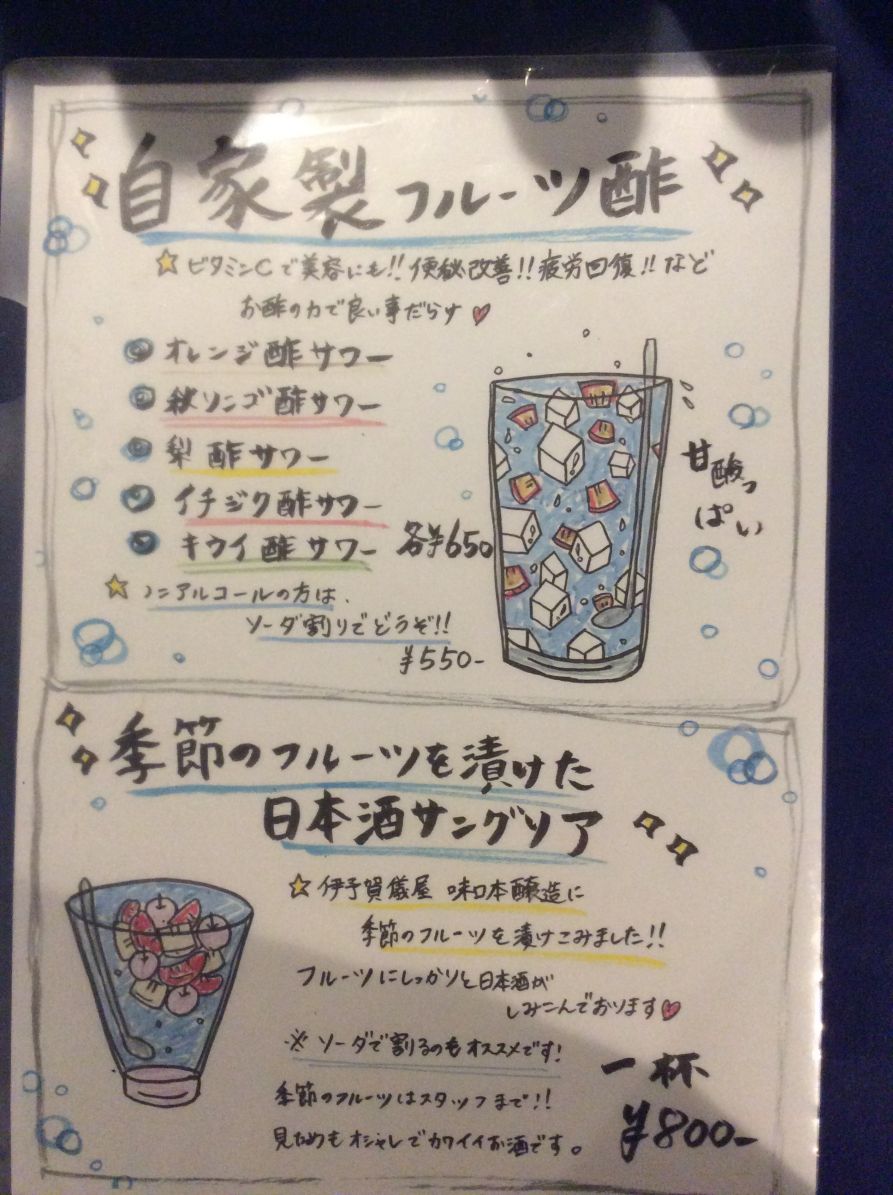 自家製フルーツ酢
☆ビタミンCで美容にも!!便秘改善!!疲労回復!!など
お酢の力で良い事だらけ♥
◎オレンジ酢サワー
◎秋リンゴ酢サワー
◎梨酢サワー
◎イチジク酢サワー
◎キウイ酢サワー 各¥650
甘酸っ
ぱい
☆ノンアルコールの方は、
ソーダ割りでどうぞ!!
¥550-
季節のフルーツを漬けた
日本酒サングリア
☆伊予賀儀屋 味口本醸造に
季節のフルーツを漬けこみました!!
フルーツにしっかりと日本酒が
しみこんでおります♥
※ソーダで割るのもオススメです!
季節のフルーツはスタッフまで!!
見ためもオシャレでカワイイお酒です。
一杯
¥800-